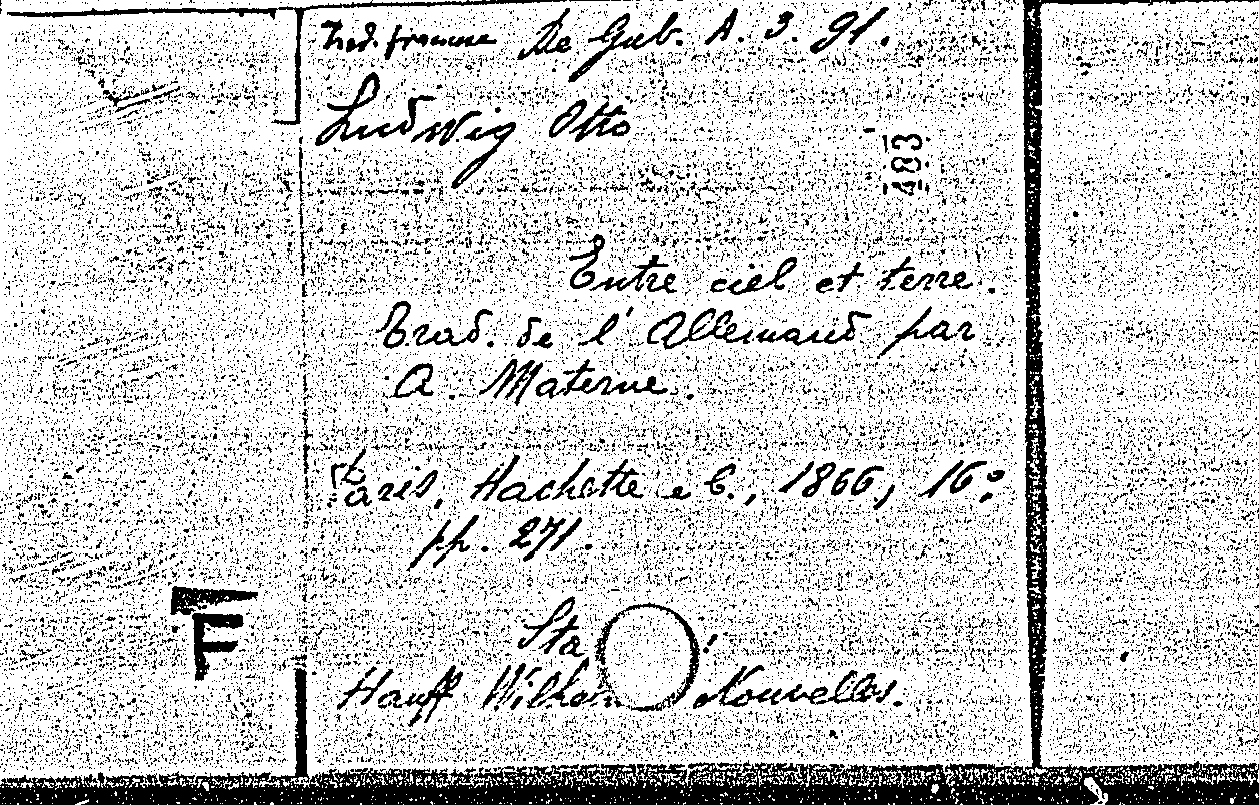 Trad. francese De Gub. A. 3. 91.
Ludwig Otto
483
Entre ciel et terre.
Trad. de l'Allemand par
A. Materne.
Paris, Hachette e C., 1866, 16º
pp. 271.
Sta
Hauff Wilhelm Nouvelles.
F